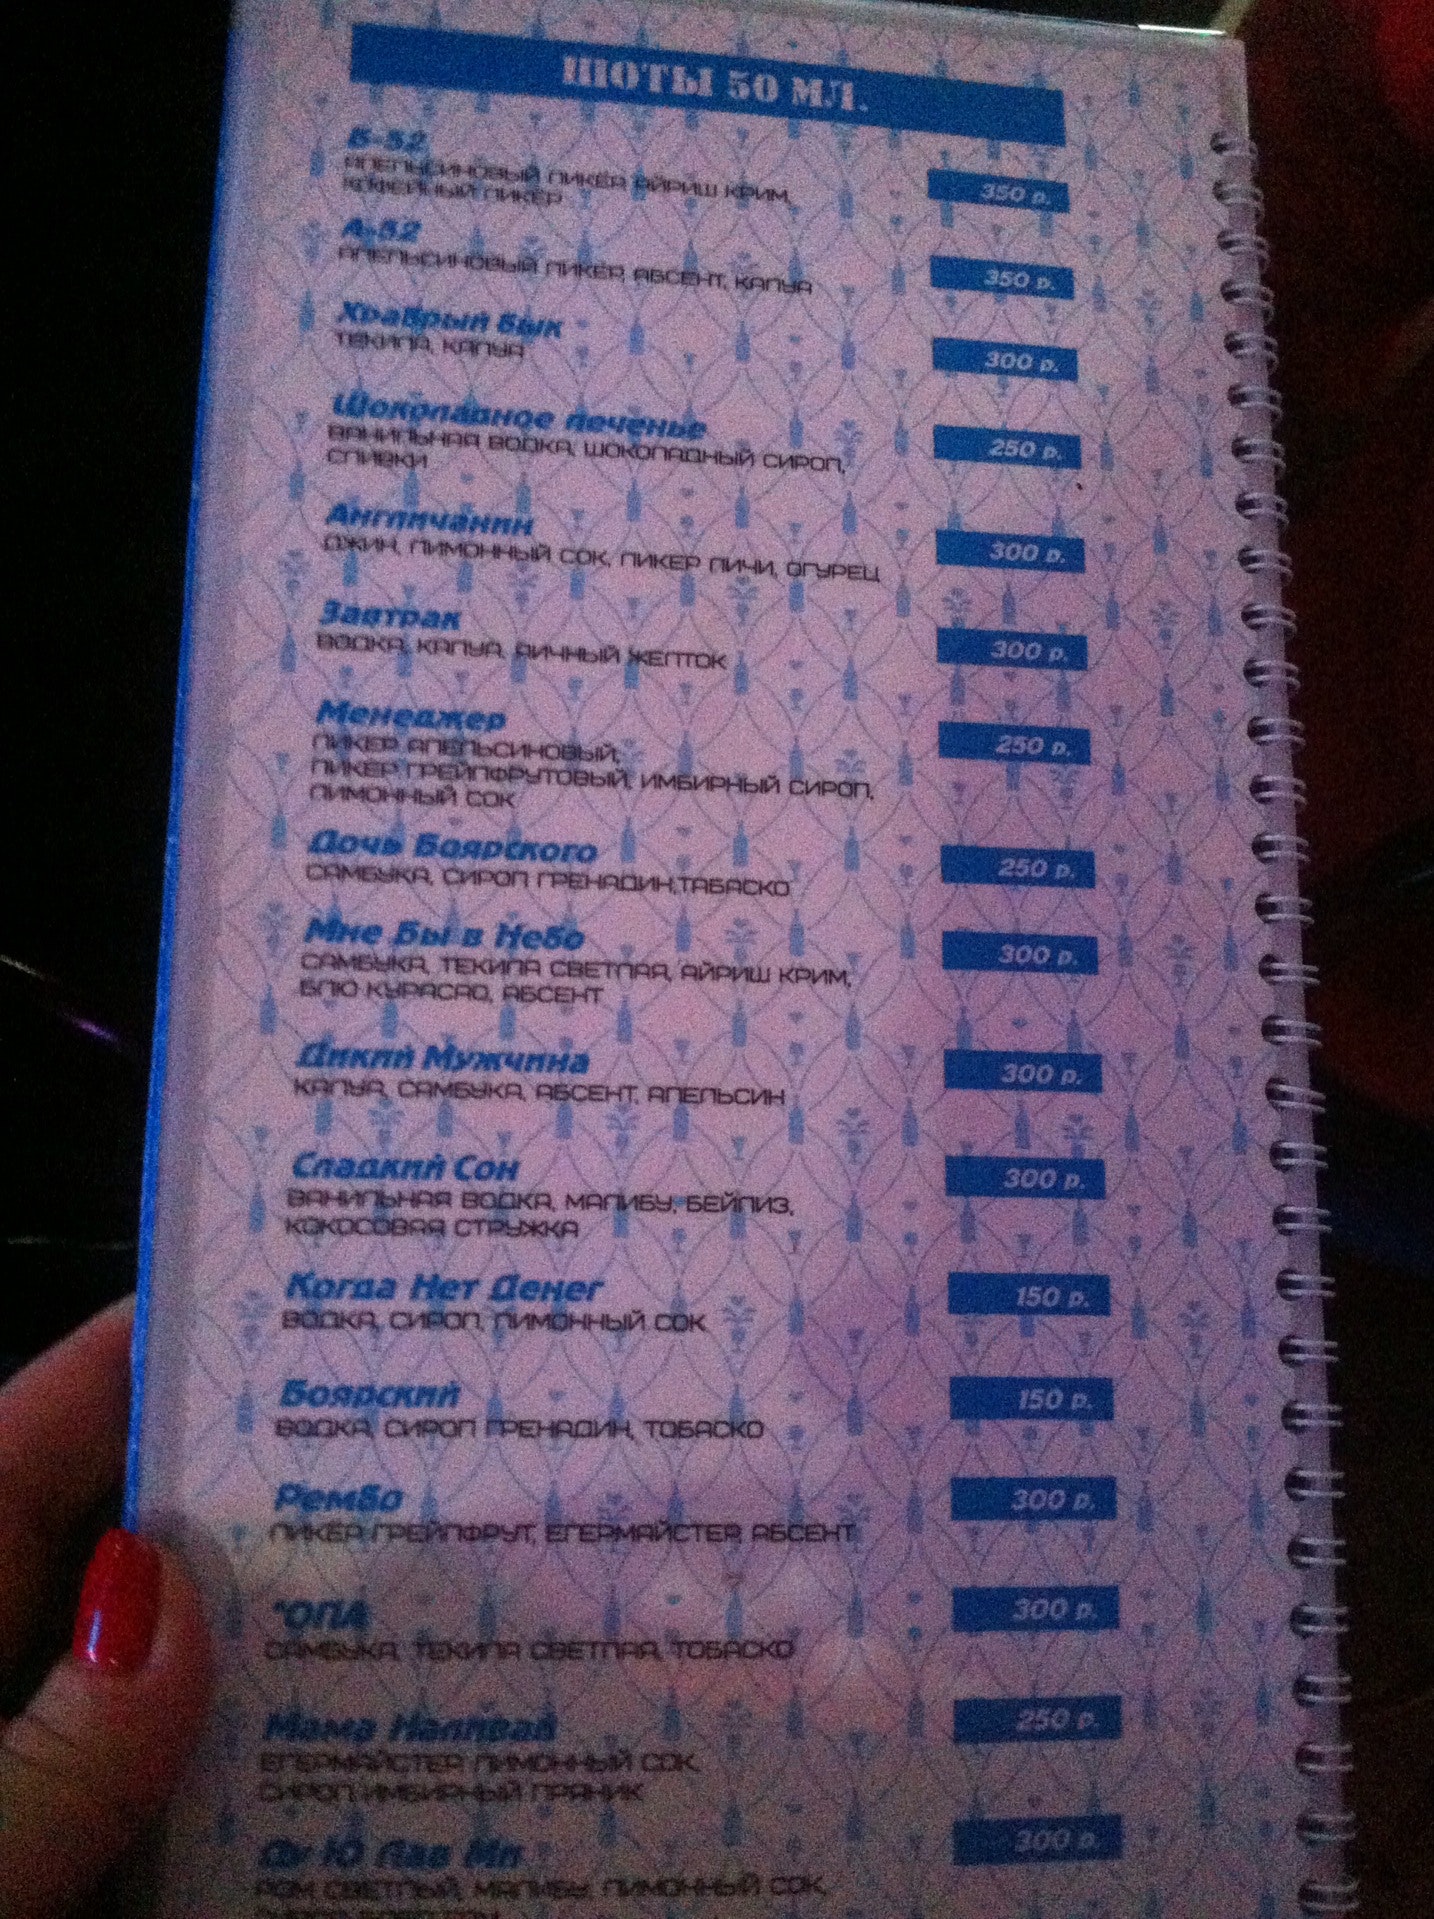 ШОТЫ 50 МЛ.
Б-52
АПЕЛЬСИНОВЫЙ ЛИКЁР, АЙРИШ КРИМ, 350 р.
КОФЕЙНЫЙ ЛИКЁР
А-52
АПЕЛЬСИНОВЫЙ ЛИКЁР, АБСЕНТ, КАЛУА 350 р.
Храбрый бык
ТЕКИЛА, КАЛУА 300 р.
Шоколадное печенье
ВАНИЛЬНАЯ ВОДКА, ШОКОЛАДНЫЙ СИРОП, 250 р.
СЛИВКИ
Англичанин
ДЖИН, ЛИМОННЫЙ СОК, ЛИКЕР ЛИЧИ, ОГУРЕЦ 300 р.
Завтрак
ВОДКА, КАЛУА, ЯИЧНЫЙ ЖЕЛТОК 300 р.
Менеджер
ЛИКЕР АПЕЛЬСИНОВЫЙ, 250 р.
ЛИКЕР ГРЕЙПФРУТОВЫЙ, ИМБИРНЫЙ СИРОП,
ЛИМОННЫЙ СОК
Дочь Боярского
САМБУКА, СИРОП ГРЕНАДИН,ТАБАСКО 250 р.
Мне Бы в Небо 300 р.
САМБУКА, ТЕКИЛА СВЕТЛАЯ, АЙРИШ КРИМ,
БЛЮ КУРАСАО, АБСЕНТ
Дикий Мужчина 300 р.
КАЛУА, САМБУКА, АБСЕНТ, АПЕЛЬСИН
Сладкий Сон 300 р.
ВАНИЛЬНАЯ ВОДКА, МАЛИБУ, БЕЙЛИЗ,
КОКОСОВАЯ СТРУЖКА
Когда Нет Денег 150 р.
ВОДКА, СИРОП, ЛИМОННЫЙ СОК
Боярский 150 р.
ВОДКА, СИРОП ГРЕНАДИН, ТОБАСКО
Рембо 300 р.
ЛИКЁР ГРЕЙПФРУТ, ЕГЕРМАЙСТЕР, АБСЕНТ
*ОПА 300 р.
САМБУКА, ТЕКИЛА СВЕТЛАЯ, ТОБАСКО
Мама 250 р.
ЕГЕРМАЙСТЕР, ЛИМОННЫЙ СОК,
СИРОП ИМБИРНЫЙ ПРЯНИК
Ду Ю Лав Ми 300 р.
РОМ СВЕТЛЫЙ, МАЛИБУ, ЛИМОННЫЙ СОК,